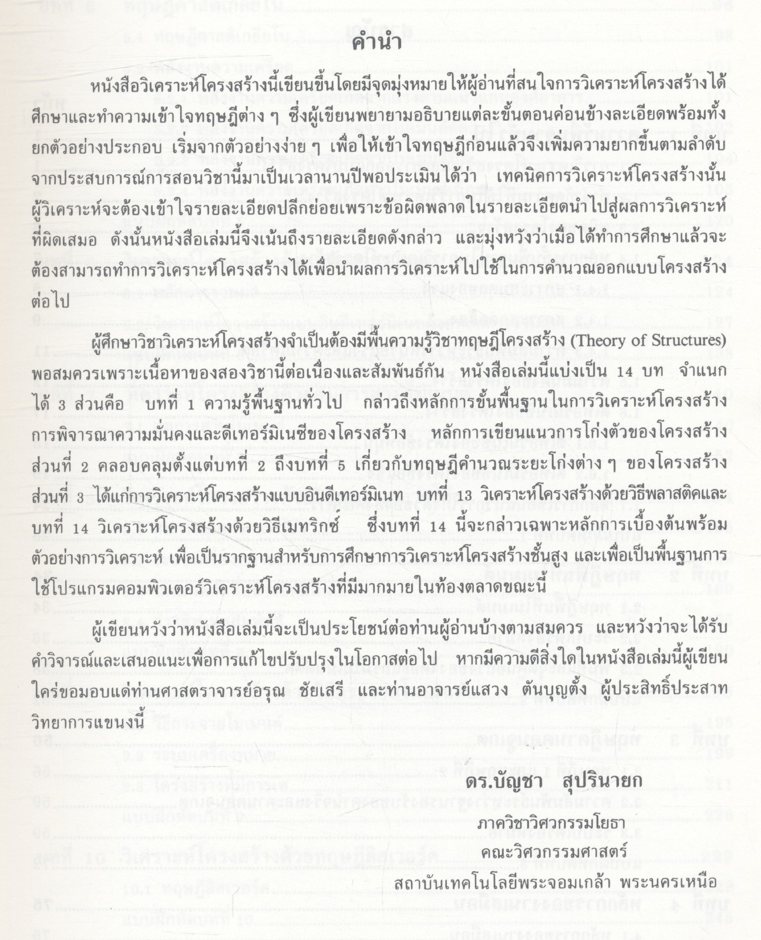 คำนำ
หนังสือวิเคราะห์โครงสร้างนี้เขียนขึ้นโดยมีจุดมุ่งหมายให้ผู้อ่านที่สนใจการวิเคราะห์โครงสร้างได้
ศึกษาและทำความเข้าใจทฤษฎีต่าง ๆ ซึ่งผู้เขียนพยายามอธิบายแต่ละขั้นตอนค่อนข้างละเอียดพร้อมทั้ง
ยกตัวอย่างประกอบ เริ่มจากตัวอย่างง่าย ๆ เพื่อให้เข้าใจทฤษฎีก่อนแล้วจึงเพิ่มความยากขึ้นตามลำดับ
จากประสบการณ์การสอนวิชานี้มาเป็นเวลานานปีพอประเมินได้ว่า เทคนิคการวิเคราะห์โครงสร้างนั้น
ผู้วิเคราะห์จะต้องเข้าใจรายละเอียดปลีกย่อยเพราะข้อผิดพลาดในรายละเอียดนำไปสู่ผลการวิเคราะห์
ที่ผิดเสมอ ดังนั้นหนังสือเล่มนี้จึงเน้นถึงรายละเอียดดังกล่าว และมุ่งหวังว่าเมื่อได้ทำการศึกษาแล้วจะ
ต้องสามารถทำการวิเคราะห์โครงสร้างได้เพื่อนำผลการวิเคราะห์ไปใช้ในการคำนวณออกแบบโครงสร้าง
ต่อไป
ผู้ศึกษาวิชาวิเคราะห์โครงสร้างจำเป็นต้องมีพื้นความรู้วิชาทฤษฎีโครงสร้าง (Theory of Structures)
พอสมควรเพราะเนื้อหาของสองวิชานี้ต่อเนื่องและสัมพันธ์กัน หนังสือเล่มนี้แบ่งเป็น 14 บท จำแนก
ได้ 3 ส่วนคือ บทที่ 1 ความรู้พื้นฐานทั่วไป กล่าวถึงหลักการขั้นพื้นฐานในการวิเคราะห์โครงสร้าง
การพิจารณาความมั่นคงและดีเทอร์มิเนซีของโครงสร้าง หลักการเขียนแนวการโก่งตัวของโครงสร้าง
ส่วนที่ 2 คลอบคลุมตั้งแต่บทที่ 2 ถึงบทที่ 5 เกี่ยวกับทฤษฎีคำนวณระยะโก่งต่าง ๆ ของโครงสร้าง
ส่วนที่ 3 ได้แก่การวิเคราะห์โครงสร้างแบบอินดีเทอร์มิเนท บทที่ 13 วิเคราะห์โครงสร้างด้วยวิธีพลาสติคและ
บทที่ 14 วิเคราะห์โครงสร้างด้วยวิธีเมทริกซ์ ซึ่งบทที่ 14 นี้จะกล่าวเฉพาะหลักการเบื้องต้นพร้อม
ตัวอย่างการวิเคราะห์ เพื่อเป็นรากฐานสำหรับการศึกษาการวิเคราะห์โครงสร้างชั้นสูง และเพื่อเป็นพื้นฐานการ
ใช้โปรแกรมคอมพิวเตอร์วิเคราะห์โครงสร้างที่มีมากมายในท้องตลาดขณะนี้
ผู้เขียนหวังว่าหนังสือเล่มนี้จะเป็นประโยชน์ต่อท่านผู้อ่านบ้างตามสมควร และหวังว่าจะได้รับ
คำวิจารณ์และเสนอแนะเพื่อการแก้ไขปรับปรุงในโอกาสต่อไป หากมีความดีสิ่งใดในหนังสือเล่มนี้ผู้เขียน
ใคร่ขอมอบแด่ท่านศาสตราจารย์อรุณ ชัยเสรี และท่านอาจารย์แสวง ตันบุญตั้ง ผู้ประสิทธิ์ประสาท
วิทยาการแขนงนี้
ดร.บัญชา สุปรินายก
ภาควิชาวิศวกรรมโยธา
คณะวิศวกรรมศาสตร์
สถาบันเทคโนโลยีพระจอมเกล้า พระนครเหนือ